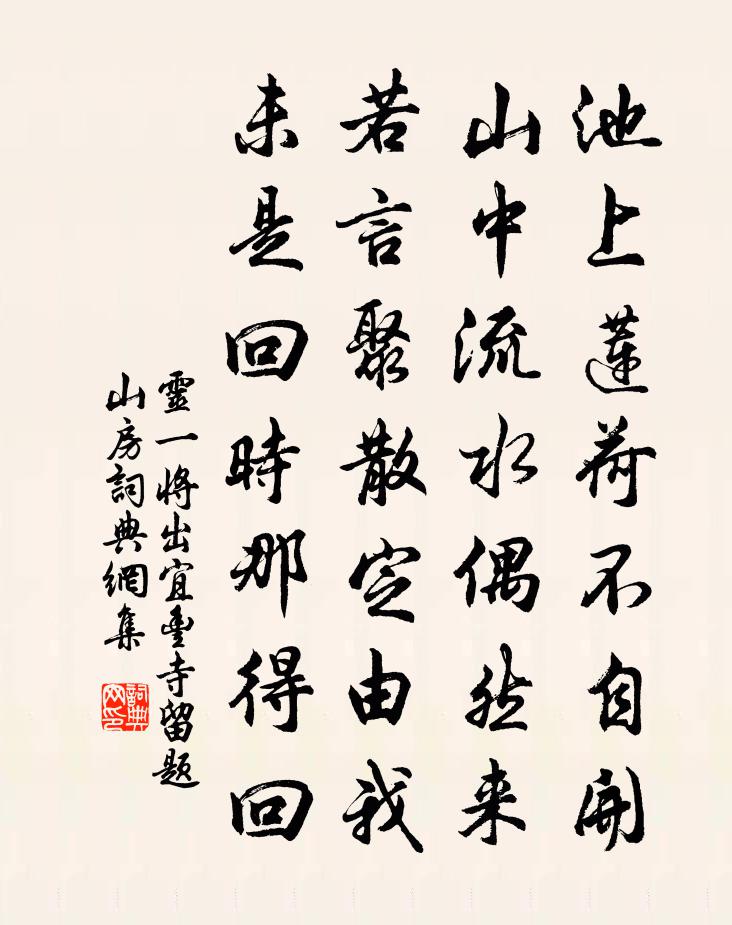 池上蓮荷不自開
山中流水偶然来
若言聚散定由我
未是回時那得回
靈一將出宜豐寺留題
山房詞典網集
詞典网印